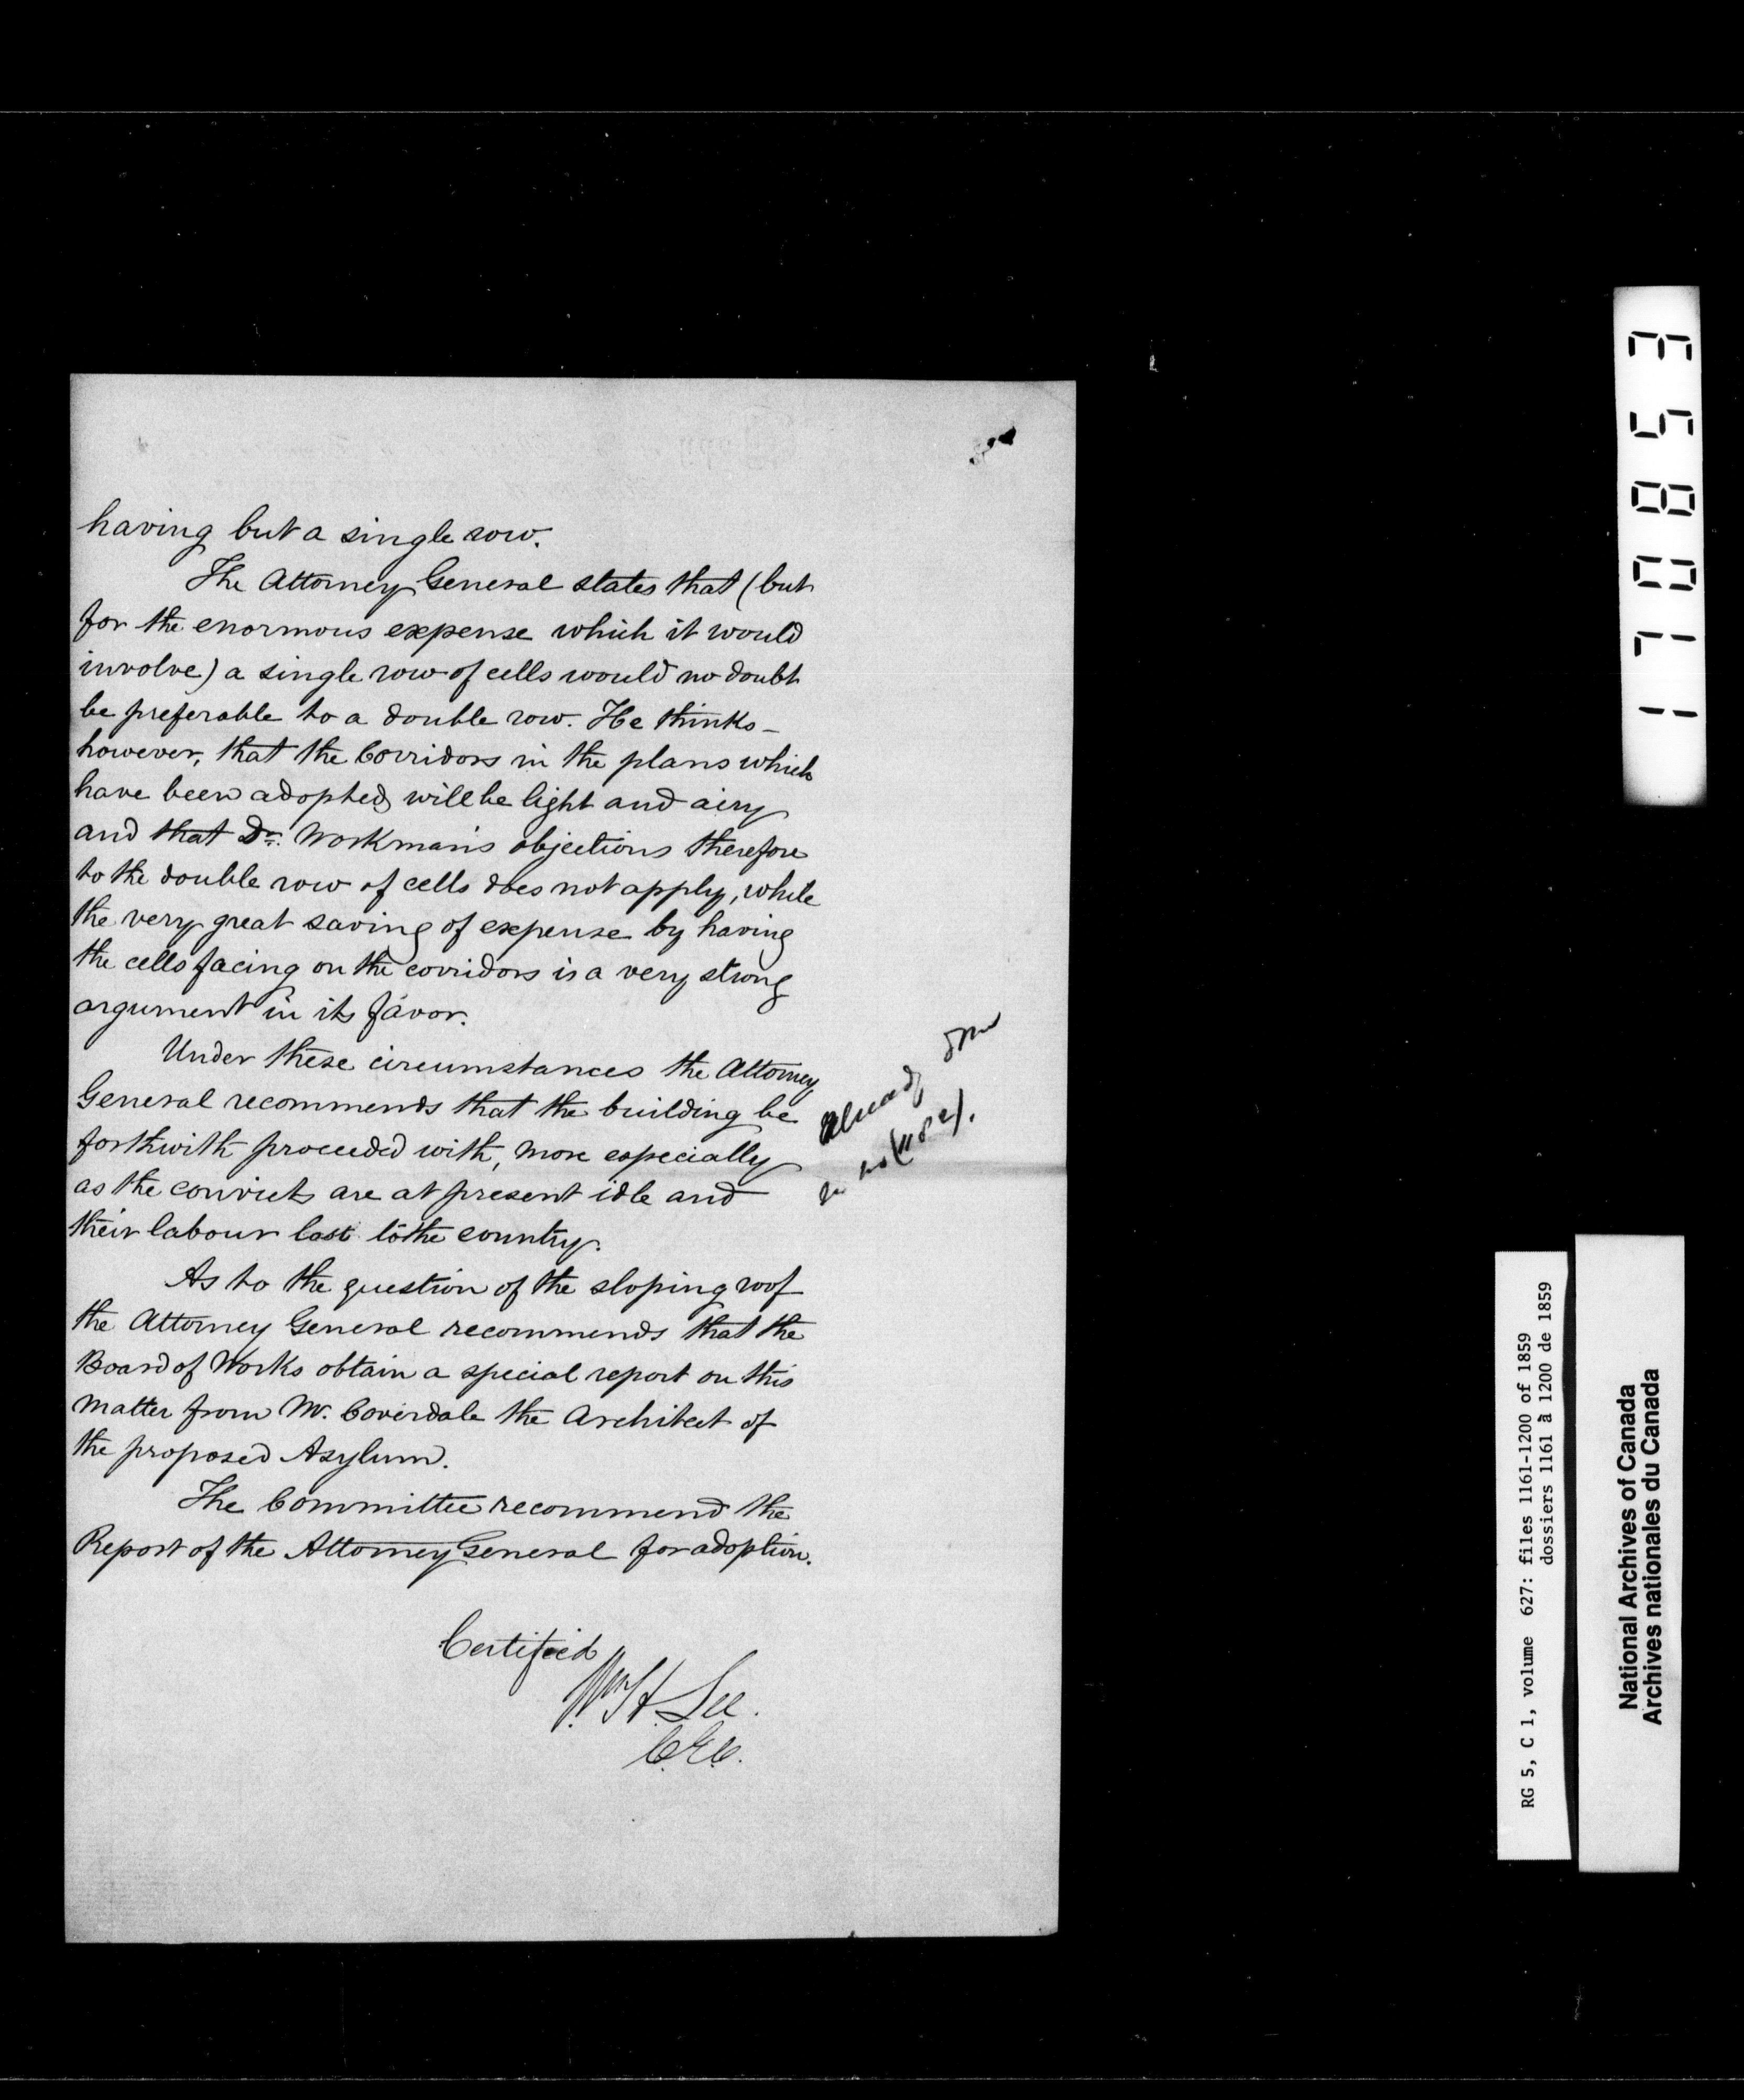 having but a single row.
The Attorney General states that (but
for the enormous expense which it would
involve) a single row of cells would no doubt
be preferable to a double row. He thinks
however, that the Corridors in the plans which
have been adopted, will be light and airy
and that Dr. Workman's objections therefore
to the double row of cells does not apply, while
the very great saving of expense by having
the cells facing on the corridors is a very strong
argument in its favor.
Under these circumstances the Attorney
General recommends that the building be
forthwith proceeded with, more especially
as the convicts are at present idle and
their labour lost to the country.
As to the question of the sloping roof
the Attorney General recommends that the
Board of Works obtain a special report on this
matter from Mr. Coverdale the Architect of
the proposed Asylum.
The Committee recommend the
Report of the Attorney General for adoption.
Certified
Wm H Lee.
C.E.C.
Already done
E58071
RG 5, C 1, volume 627: files 1161-1200 of 1859
dossiers 1161 à 1200 de 1859
National Archives of Canada
Archives nationales du Canada